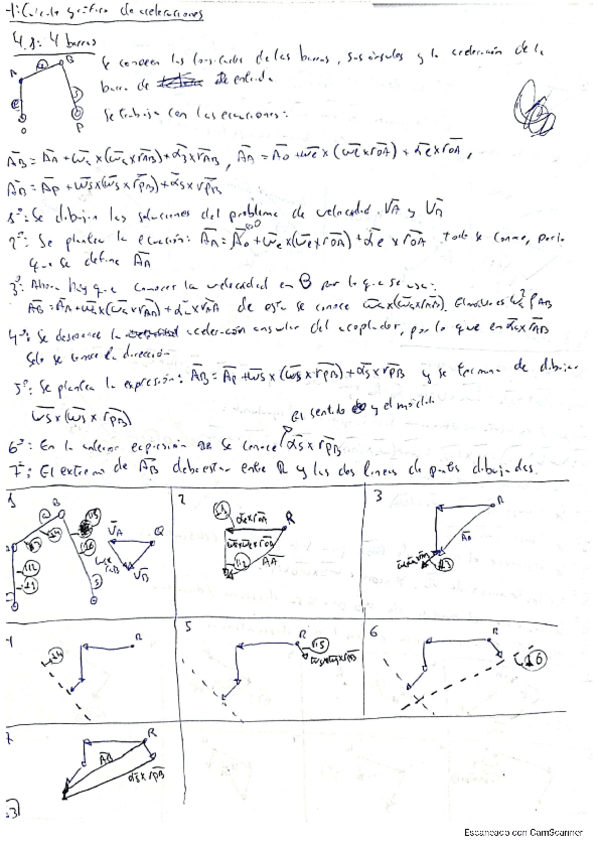 4: Calculo gráfico de aceleraciones
4.1: 4 barras
Se conocen las longitudes de las barras, sus ángulos y la aceleración de la
barra de entrada
Se trabaja con las ecuaciones:
A B O P
A̅B = A̅A + ω̅a x (ω̅a x r̅AB) + α̅a x r̅AB , A̅A = A̅o + ω̅e x (ω̅e x r̅OA) + α̅e x r̅OA ,
A̅B = A̅p + ω̅s x (ω̅s x r̅pB) + α̅s x r̅pB
1º: Se dibujan las soluciones del problema de velocidad V̅A y V̅B
2º: Se plantea la ecuación: A̅A = A̅o + ω̅e x (ω̅e x r̅OA) + α̅e x r̅OA todo se conoce, por lo
que se define A̅A
3º: Ahora hay que conocer la velocidad en B por lo que se usa:
A̅B = A̅A + ω̅a x (ω̅a x r̅AB) + α̅a x r̅AB de esta se conoce ω̅a x (ω̅a x r̅AB). El módulo es
4º: Se desconoce la aceleración angular del acoplador, por lo que en α̅a x r̅AB
solo se conoce la dirección
5º: Se plantea la expresión: A̅B = A̅p + ω̅s x (ω̅s x r̅pB) + α̅s x r̅pB y se termina de dibujar
ω̅s x (ω̅s x r̅pB)
el sentido y el módulo
6º: En la anterior expresión se conoce α̅s x r̅pB
7º: El extremo de A̅B debe estar entre R y las dos líneas de puntos dibujadas.
1 B V̅A Q V̅B
2 α̅e x r̅OA R A̅A
3 R A̅A
4 R
5 R
6 R
7 R A̅B α̅s x r̅pB
Escaneado con CamScanner